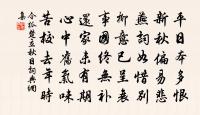 平日本多恨
新秋偏易悲
燕詞如惜別
柳意已呈衰
事國終無補
還家未有期
心中舊氣味
苦校去年時
令狐楚立秋日詞典網
集